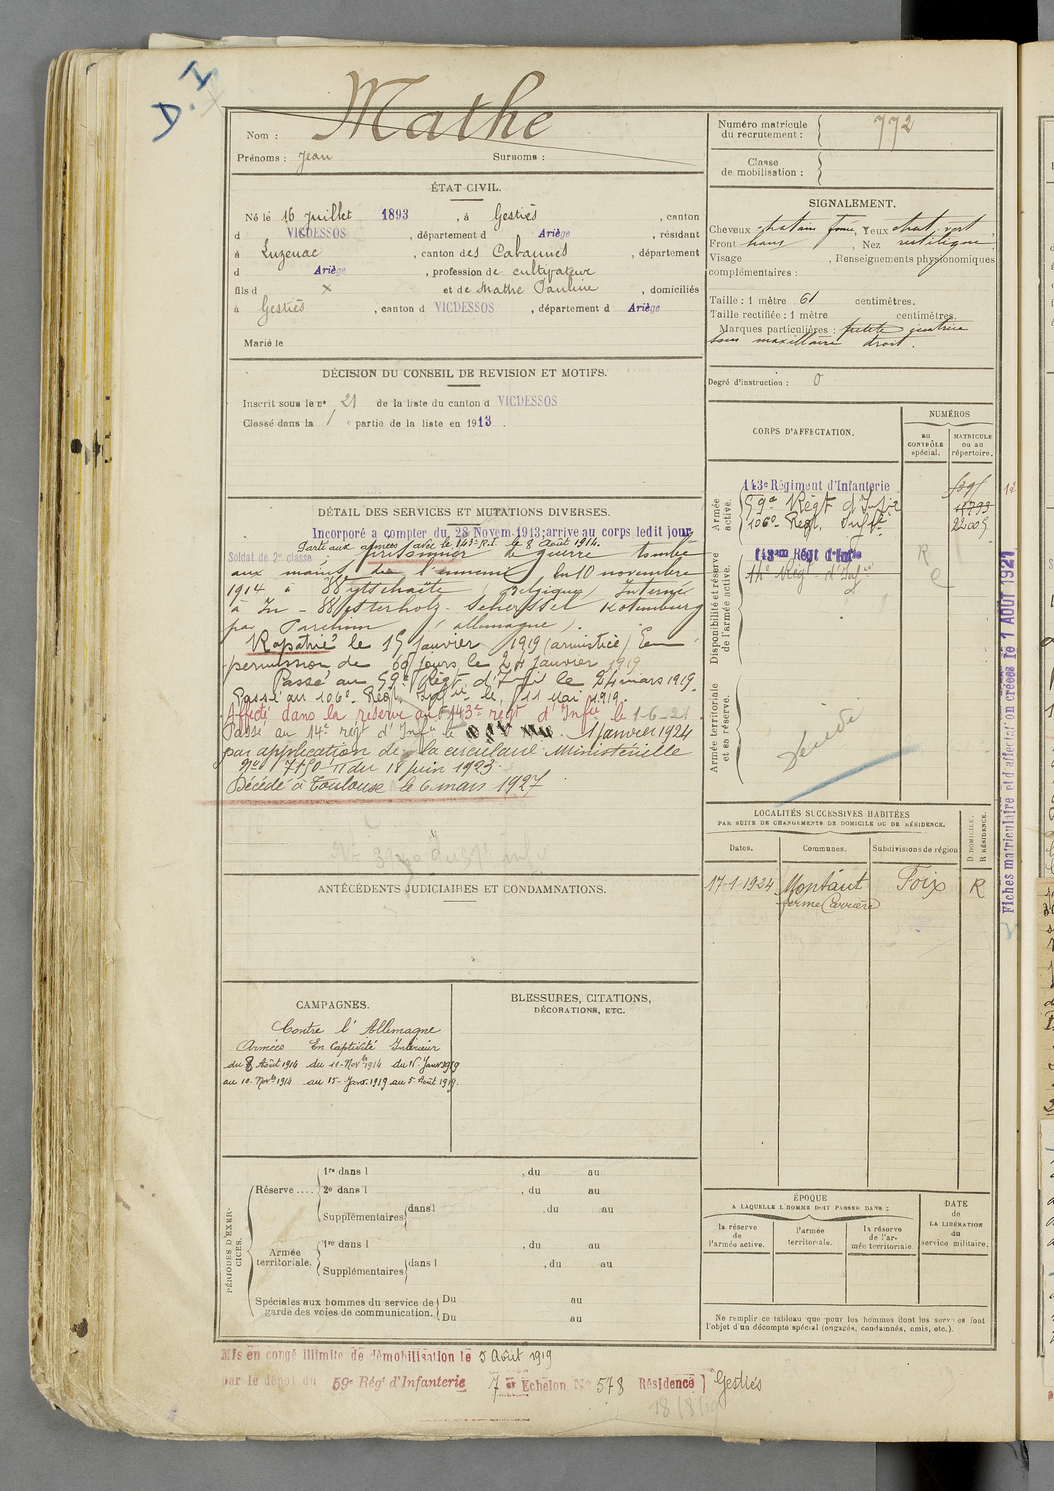 D.I
Mathe
Nom :
Prénoms : Jean Surnoms :
ÉTAT CIVIL.
Né le 16 Juillet 1893, à Gestiès, canton
d VICDESSOS, département d Ariège, résidant
à Luzenac, canton des Cabannes, département
d Ariège, profession de cultivateur
fils d × et de Mathe Pauline, domiciliés
à Gestiès, canton d VICDESSOS, département d Ariège
Marié le
DÉCISION DU CONSEIL DE REVISION ET MOTIFS.
Inscrit sous le n° 21 de la liste du canton d VICDESSOS
Classé dans la 1 e partie de la liste en 1913.
DÉTAIL DES SERVICES ET MUTATIONS DIVERSES.
Incorporé a compter du 28 Novem. 1913; arrive au corps ledit jour
Parti aux armées avec le 143e R.I le 8 Août 1914.
Soldat de 2e classe prisonnier de guerre tombé
aux mains de l'ennemi le 10 novembre
1914 à Wytschaëte Belgique Interné
à In - Westerholz - Scherssel Rotemburg
par Parchim (Allemagne).
Rapatrié le 15 Janvier 1919 (armistice) En
permission de 60 jours le 24 Janvier 1919
Passé au 59e Régt d'Infie le 24 mars 1919.
Passé au 106e Régt Infie le 11 Mai 1919.
Affecté dans la réserve au 143e régt d'Infie le 1-6-21.
Passé au 14e régt d'Infie le 1 Janvier 1924
par application de la circulaire Ministérielle
du 18 Juin 1923.
Décédé à Toulouse le 6 mars 1927
ANTÉCÉDENTS JUDICIAIRES ET CONDAMNATIONS.
CAMPAGNES.
Contre l'Allemagne
Armées En Captivité Intérieur
du 8 Août 1914 du 11-Novbre 1914 du 16 Janv 1919
au 10-Novbre 1914 au 15-Janv. 1919 au 5-Août 1919.
BLESSURES, CITATIONS,
DÉCORATIONS, ETC.
PÉRIODES D'EXERCICES.
Réserve ....
1re dans l , du au
2e dans l , du au
Supplémentaires dans l , du au
Armée territoriale.
1re dans l , du au
Supplémentaires dans l , du au
Spéciales aux hommes du service de Du au
garde des voies de communication. Du au
Mis en congé illimité de démobilisation le 5 Août 1919
par le dépôt du 59e Régt d'Infanterie 7 Echelon No 578 Résidence Gestiès
Numéro matricule
du recrutement : 772
Classe
de mobilisation :
SIGNALEMENT.
Cheveux chatain foncé, Yeux chat. vert,
Front haus, Nez rectiligne
Visage , Renseignements physionomiques
complémentaires :
Taille : 1 mètre 61 centimètres.
Taille rectifiée : 1 mètre centimètres.
Marques particulières : petite cicatrice
sous maxillaire droit.
Degré d'instruction : 0
CORPS D'AFFECTATION.
NUMÉROS
au
CONTRÔLE
spécial.
MATRICULE
ou au
répertoire.
Armée
active.
143e Régiment d'Infanterie
59e Régt d'Infie
106e Régt Infie 22009
Disponibilité et réserve
de l'armée active.
143ème Régt d'Infie
14e Régt d'Infie
Armée territoriale
et sa réserve.
Décédé
Fiches matriculaire et d'affectation créées le 1 AOUT 1921
LOCALITÉS SUCCESSIVES HABITÉES
PAR SUITE DE CHANGEMENTS DE DOMICILE OU DE RÉSIDENCE.
Dates. Communes. Subdivisions de région
D DOMICILE.
R RÉSIDENCE.
17-1-1924 Montaut Foix R
ferme Carrière
ÉPOQUE
A LAQUELLE L'HOMME DOIT PASSER DANS :
la réserve
de
l'armée active.
l'armée
territoriale.
la réserve
de l'ar-
mée territoriale.
DATE
de
LA LIBÉRATION
du
service militaire.
Ne remplir ce tableau que pour les hommes dont les services font
l'objet d'un décompte spécial (engagés, condamnés, omis, etc.).